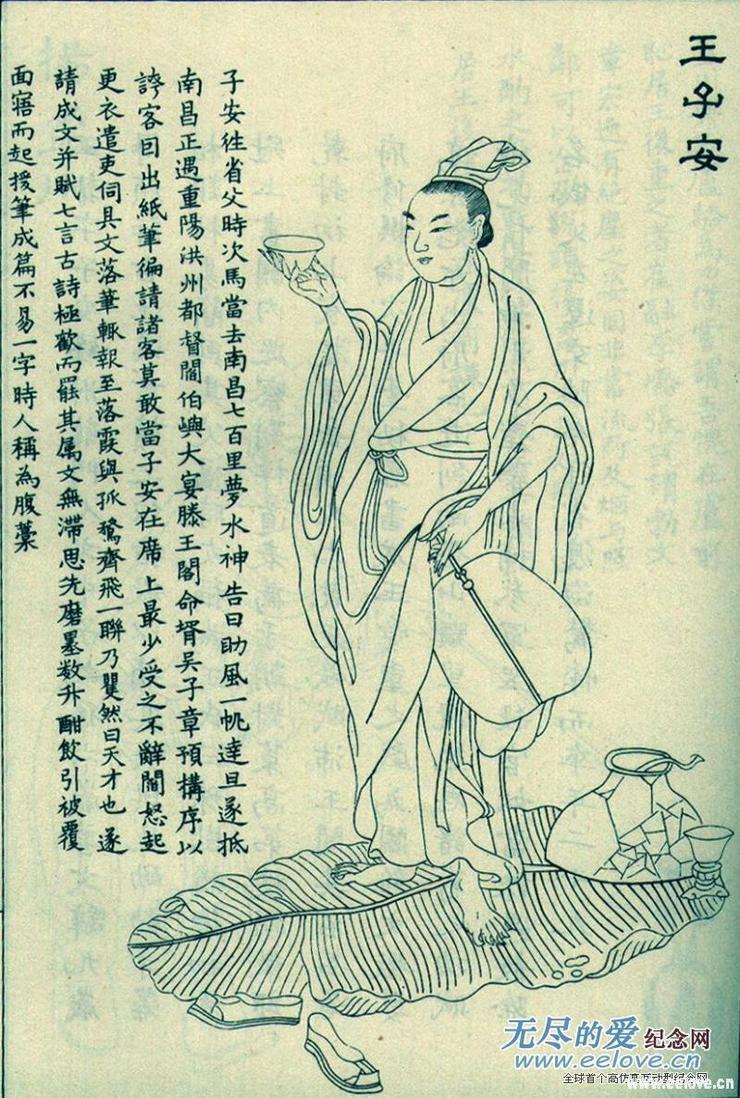 王子安
子安往省父時次馬當去南昌七百里夢水神告曰助風一帆達旦遂抵
南昌正遇重陽洪州都督閻伯嶼大宴滕王閣命壻吳子章預構序以
誇客因出紙筆徧請諸客莫敢當子安在席上最少受之不辭閻怒起
更衣遣吏伺其文落筆輒報至落霞與孤鶩齊飛一聯乃矍然曰天才也遂
請成文并賦七言古詩極歡而罷其属文無滯思先磨墨数升酣飲引被覆
面寤而起援筆成篇不易一字時人稱為腹藁
无尽的爱纪念网
www.eelove.cn
全球首个高仿真互动型纪念网
www.eelove.cn